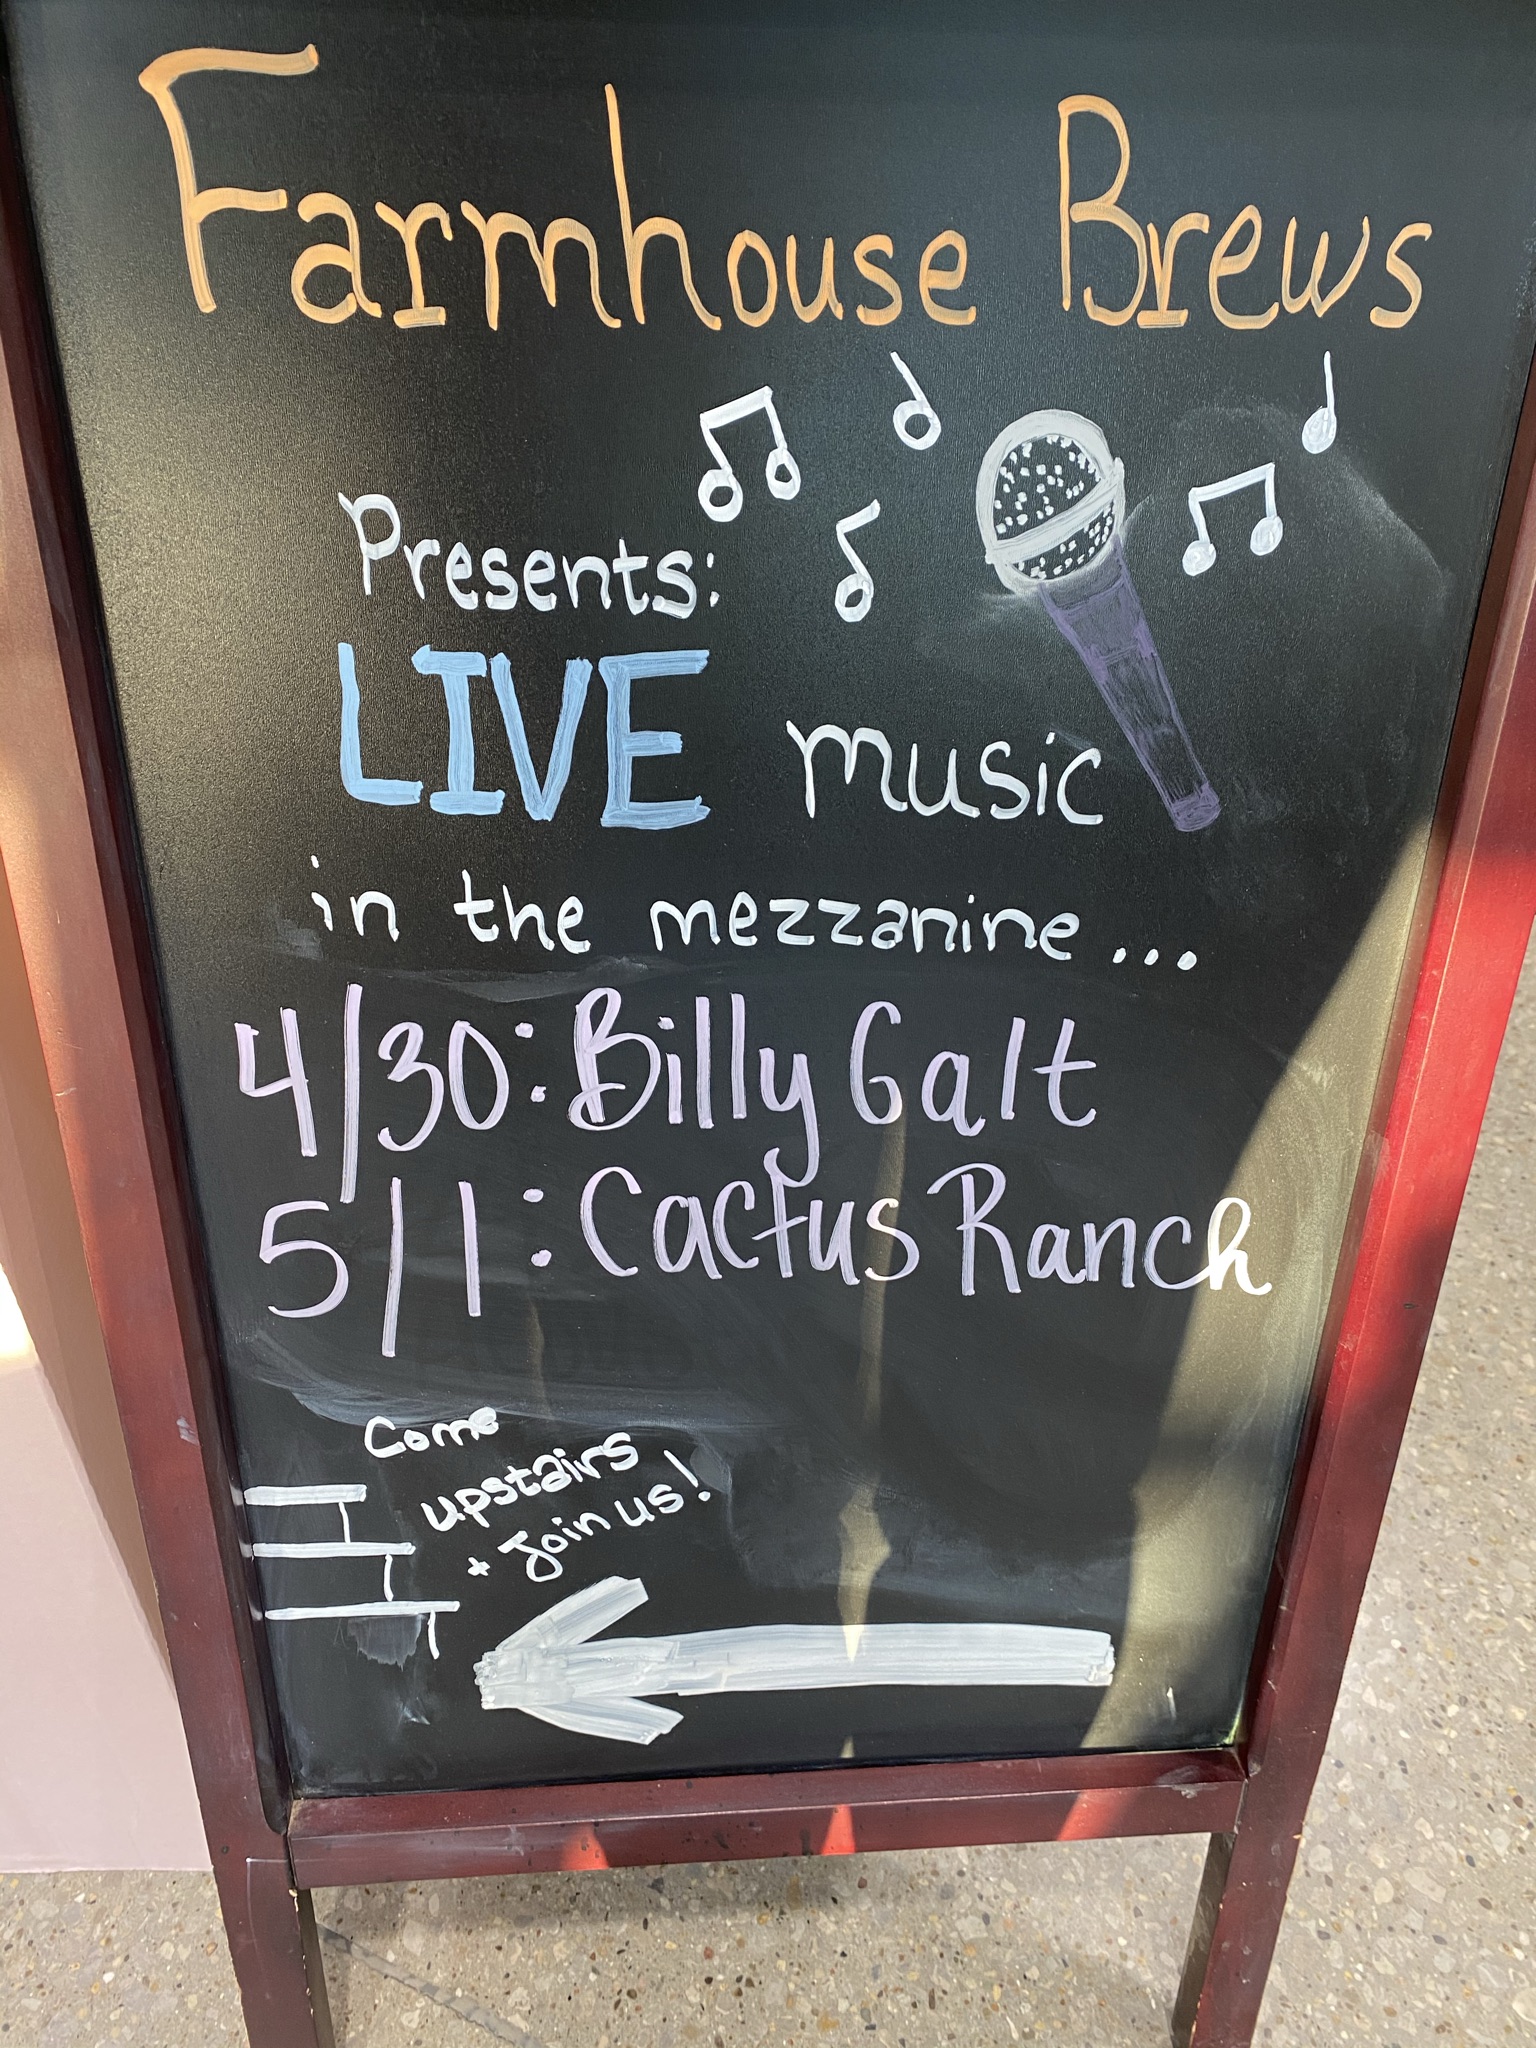 Farmhouse Brews
Presents:
LIVE music
in the mezzanine...
4/30: Billy Galt
5/1: Cactus Ranch
Come
upstairs
+ Join us!